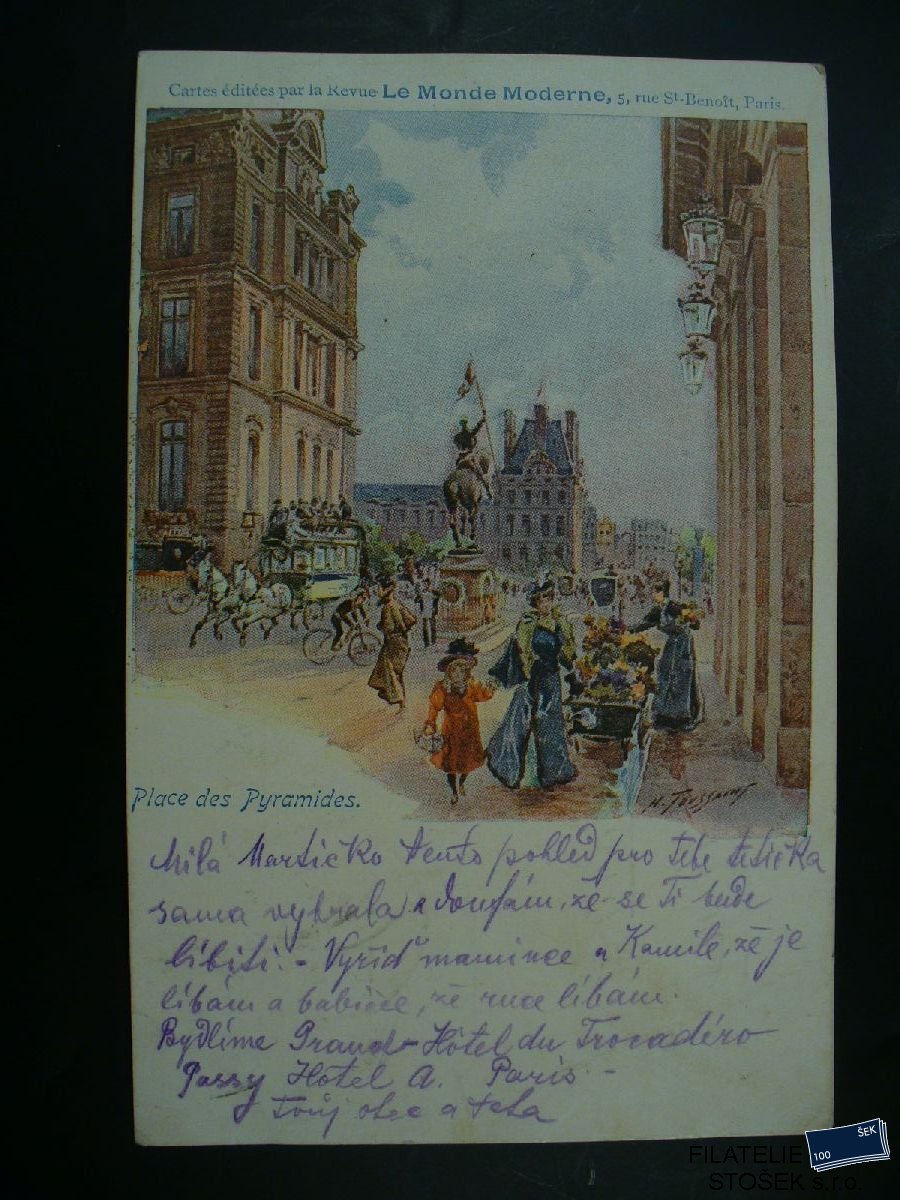 Cartes éditées par la Revue Le Monde Moderne, 5, rue St-Benoît, Paris.
Place des Pyramides.
H. Toussaint
Milá Martičko tento pohled pro Tebe tetička
sama vybrala a doufám, že se Ti bude
líbiti. - Vyřiď mamince a Kamile, že je
líbám a babičce, že ruce líbám.
Bydlíme Grand-Hôtel du Trocadéro
Passy Hôtel A. Paris -
Tvůj otec a teta
FILATELIE
STOŠEK s.r.o.
100 ŠEK